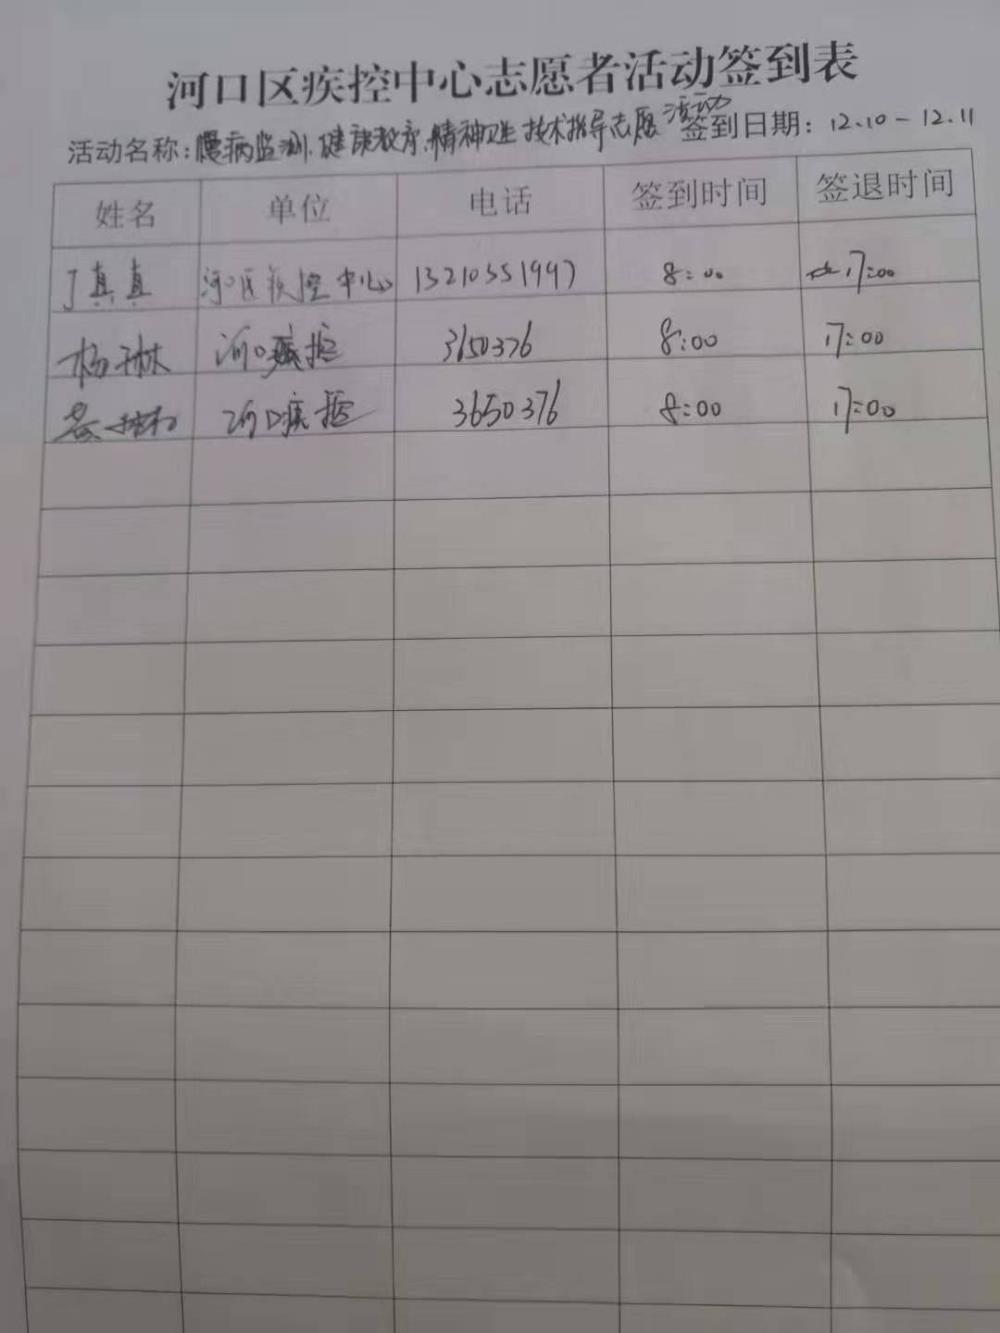 河口区疾控中心志愿者活动签到表
活动名称：慢病监测、健康教育、精神卫生技术指导志愿活动 签到日期：12.10-12.11
姓名 单位 电话 签到时间 签退时间
丁真真 河口区疾控中心 13210351997 8:00 17:00
杨琳 河口疾控 3650376 8:00 17:00
河口疾控 3650376 8:00 17:00